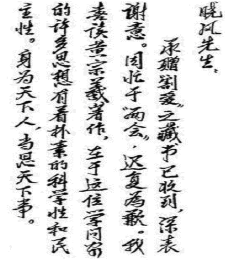 晓风先生：
承赠割爱之藏书已收到，深表
谢意。因忙于“两会”，迟复为歉。我
喜读黄宗羲著作，在于这位学问家
的许多思想有着朴素的科学性和民
主性。身为天下人，当思天下事。